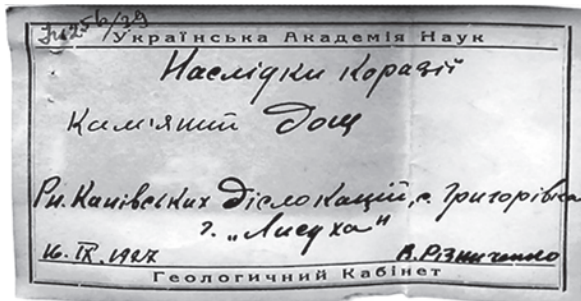 56/29
Українська Академія Наук
Наслідки коразії
Кам'яний дощ
Рн. Канівських Діслокацій, с. Григорівка
г. „Лисуха"
16. IX. 1927 В. Різниченко
Геологичний Кабінет